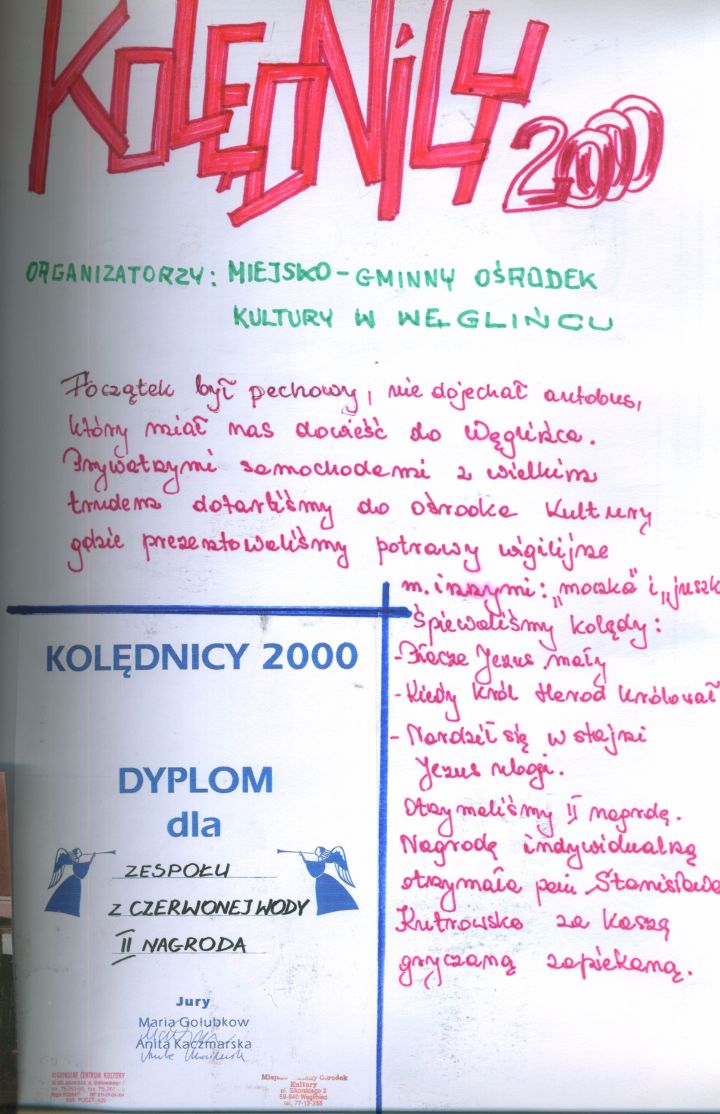 KOLĘDNICY 2000
ORGANIZATORZY: MIEJSKO-GMINNY OŚRODEK
KULTURY W WĘGLIŃCU
Początek był pechowy, nie dojechał autobus,
który miał nas dowieść do Węglińca.
Prywatnymi samochodami z wielkim
trudem dotarliśmy do ośrodka Kultury
gdzie prezentowaliśmy potrawy wigilijne
m.innymi: „moczka" i „juszk
Śpiewaliśmy kolędy:
- Płacze Jezus mały
- Kiedy król Herod królował
- Nardził się w stajni
Jezus ubogi.
Otrzymaliśmy II nagrodę.
Nagrodę indywidualną
otrzymała pani Stanisława
Kutrowska za kaszą
gryczaną zapiekaną.
KOLĘDNICY 2000
DYPLOM
dla
ZESPOŁU
Z CZERWONEJ WODY
II NAGRODA
Jury
Maria Gołubkow
Anita Kaczmarska
REGIONALNE CENTRUM KULTURY
Miejsko-Gminny Ośrodek
Kultury
pl. Sikorskiego 3
59-940 Węgliniec
tel. 77-12-288